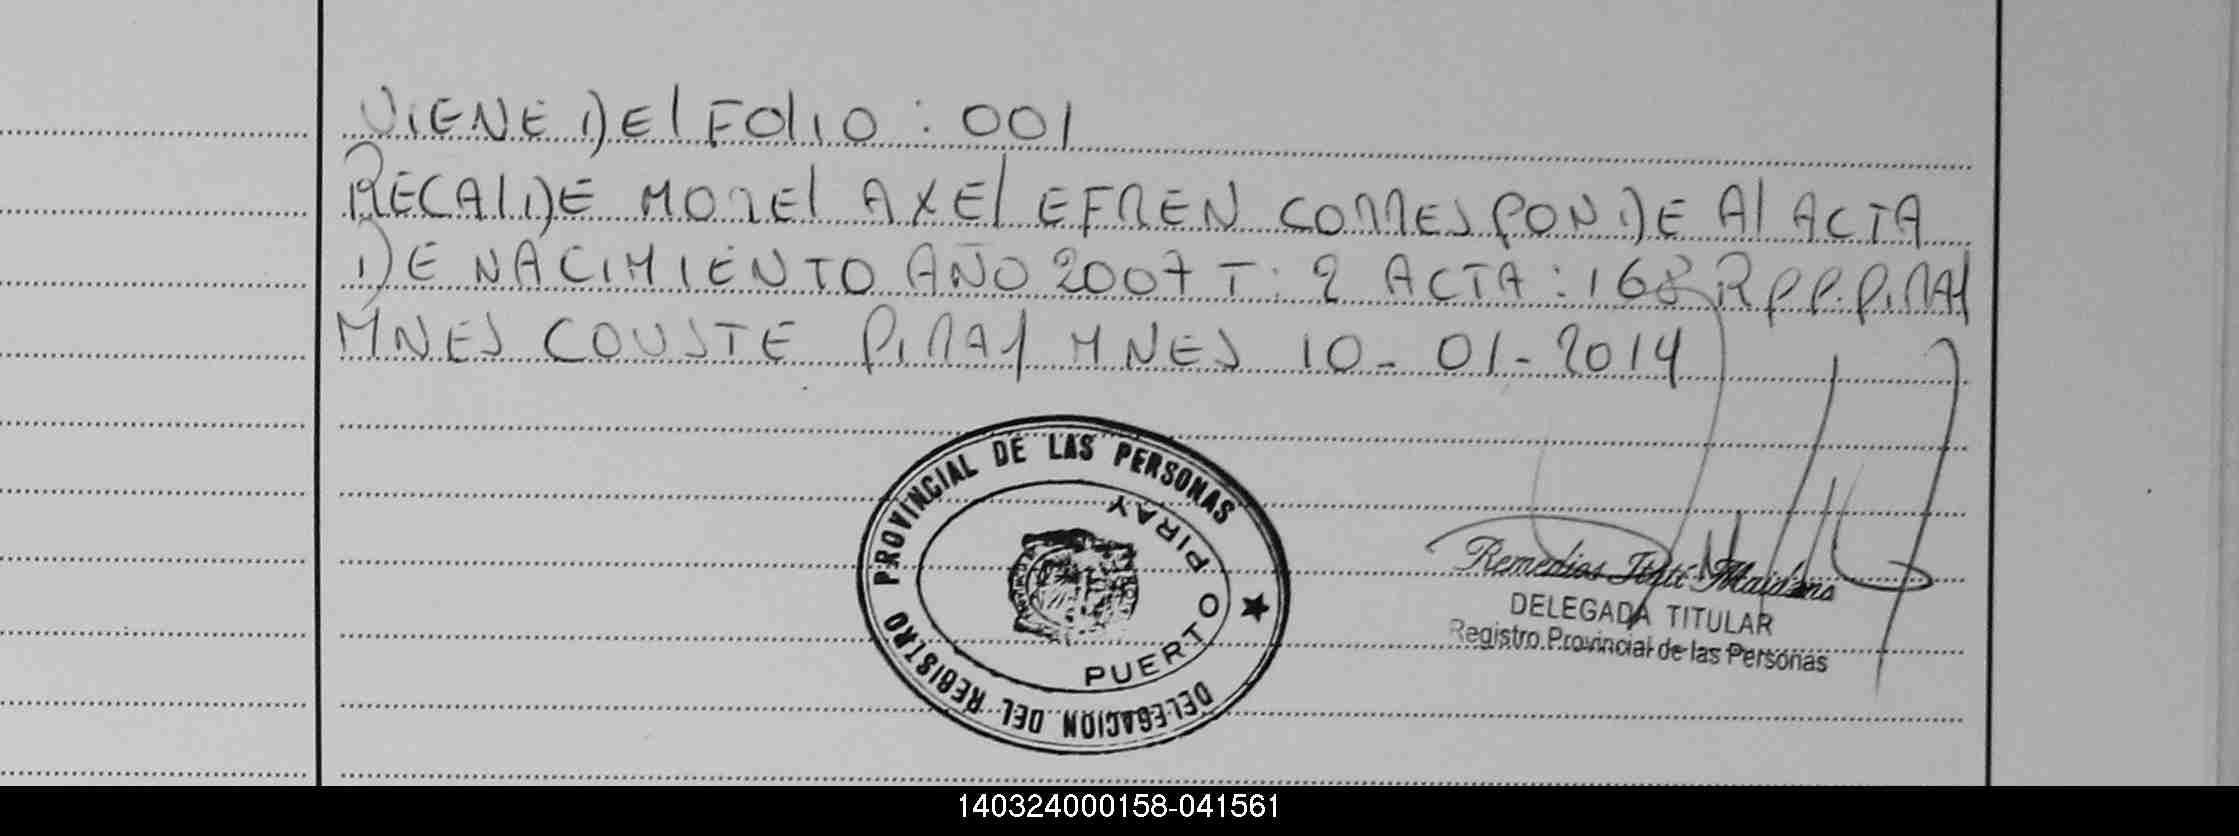 VIENE DEL FOLIO: 001
RECALDE MOREL AXEL EFREN CORRESPONDE AL ACTA
DE NACIMIENTO AÑO 2007 T: 2 ACTA: 168 R.P.P. PIRAY
MNES CONSTE PIRAY MNES 10-01-2014
DELEGACION DEL REGISTRO PROVINCIAL DE LAS PERSONAS
PUERTO PIRAY
Remedios Itatí
DELEGADA TITULAR
Registro Provincial de las Personas
140324000158-041561